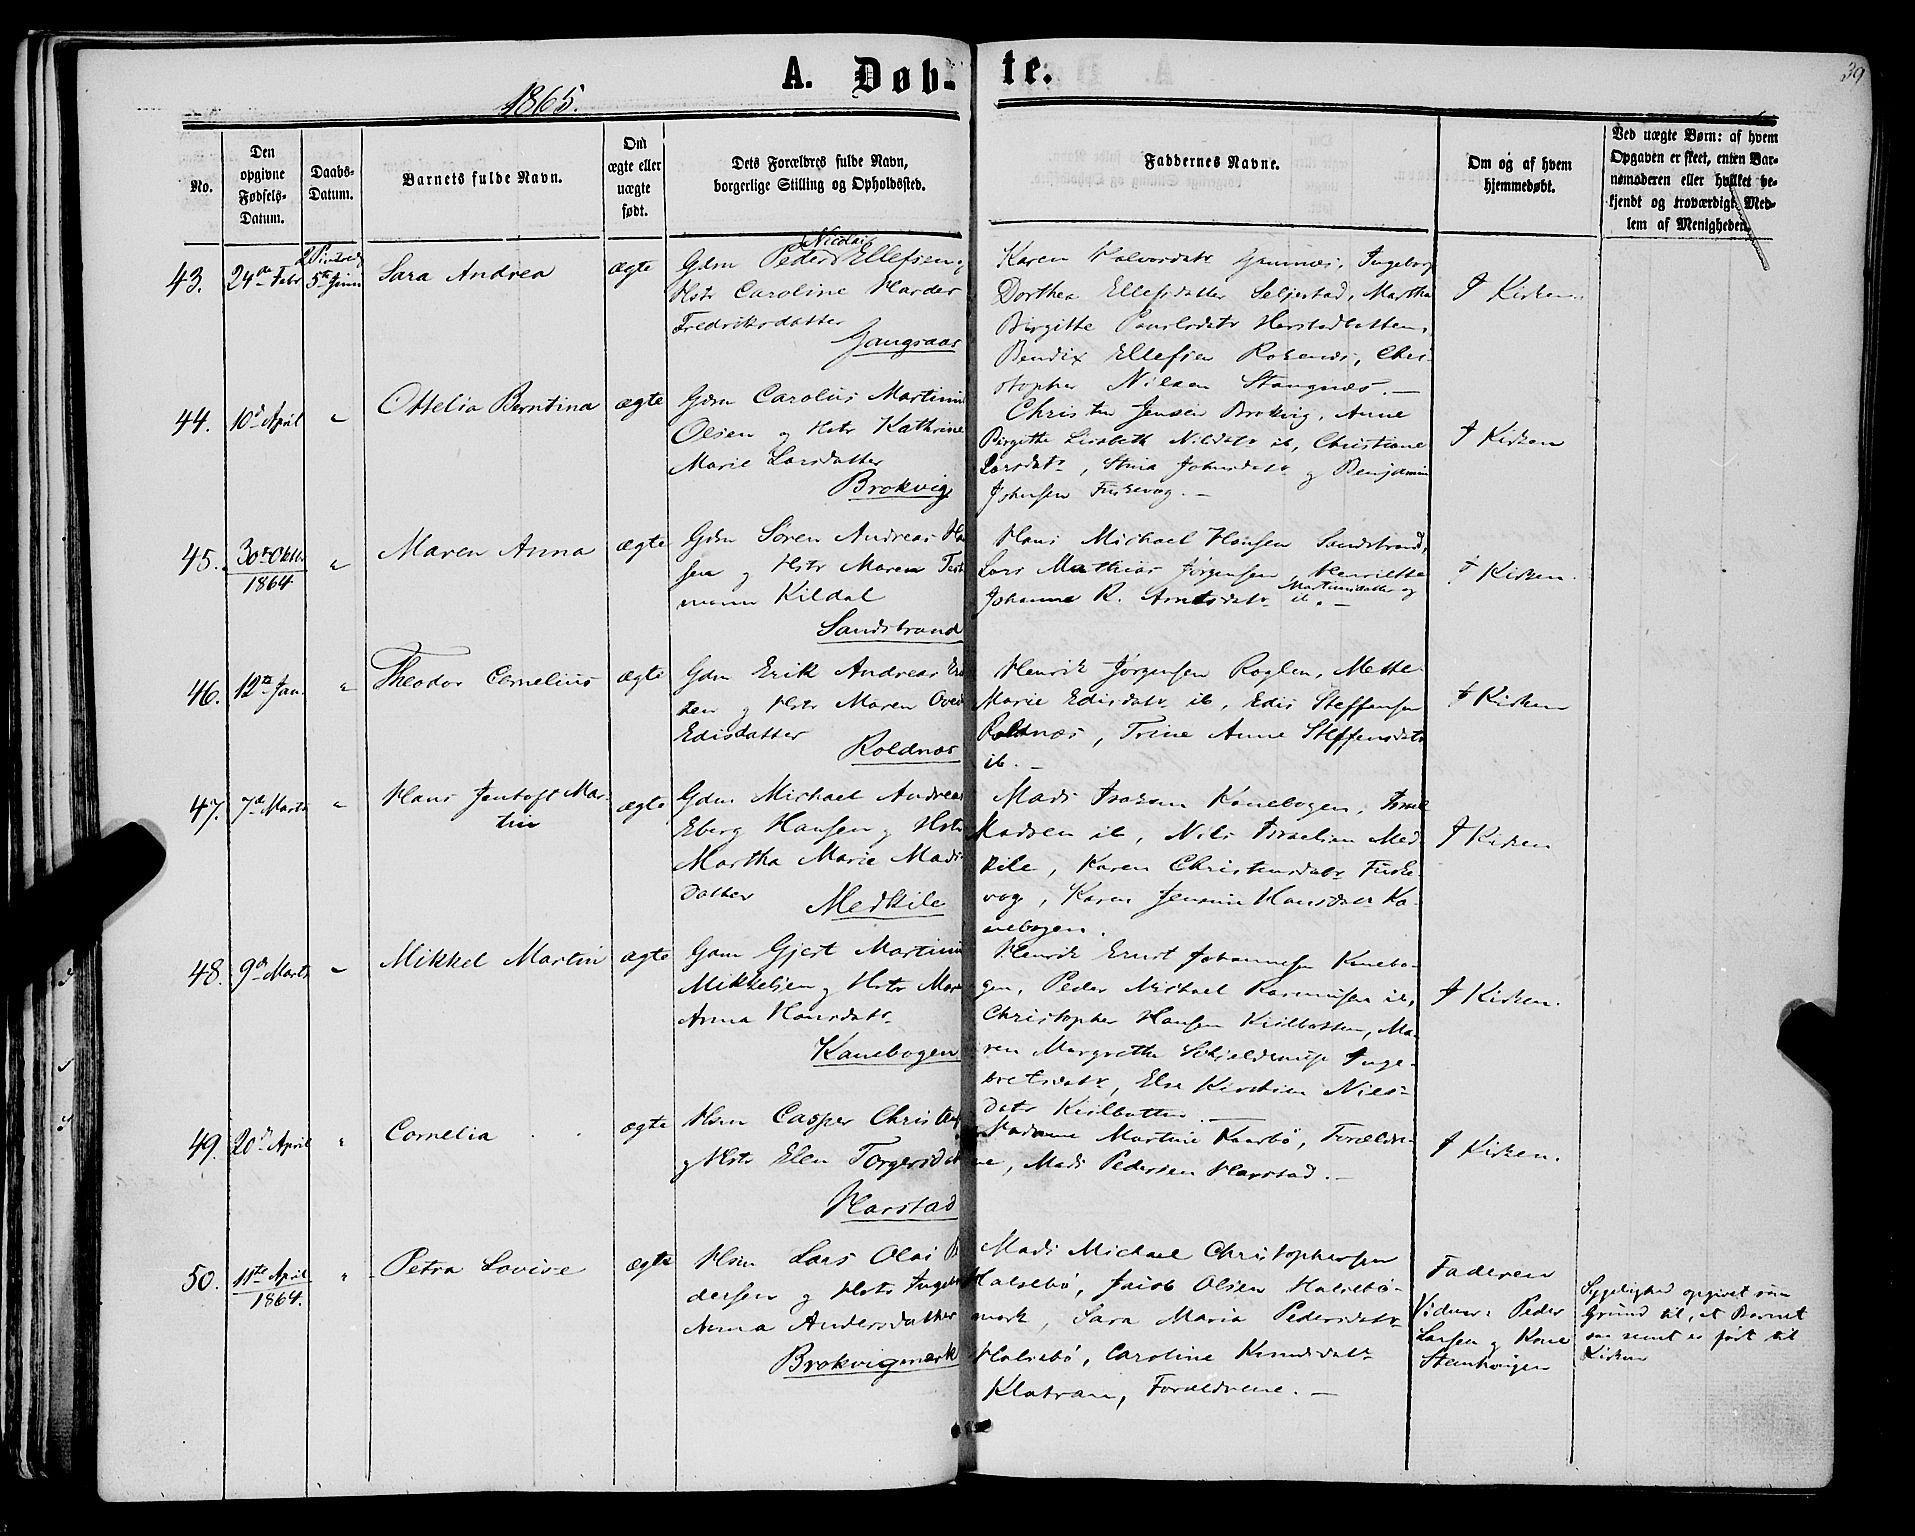 A. Døb-te.
39
1865.
No.
Den opgivne Fødsels-Datum.
Daabs-Datum.
Barnets fulde Navn.
Om ægte eller uægte født.
Dets Forældres fulde Navn, borgerlige Stilling og Opholdssted.
Faddernes Navne.
Om og af hvem hjemmedøbt.
Ved uægte Børn: af hvem Opgaven er skeet, enten Barnemoderen eller hvilket bekjendt og troværdigt Medlem af Menigheden.
43. 24de Febr 5te Juni Sara Andrea ægte
Gdm Peder Nicolai Ellefsen og
Hstr Caroline Harder
Fredriksdatter
Gangsaas
Karen Halvordatr Ingeborg
Dorthea Ellefsdatter Seljestad, Martha
Birgitte Harstadbotten,
Bendix Ellefsen Chri-
stopher Nilsen Stangnæs. —
I Kirken.
44. 10de April " Ottelia Berntina ægte
Gdm Carolus Martinus
Olsen og Hstr Kathrine
Marie Larsdatter
Brokvig
Christen Jensen Brokvig, Anne
Birgitte Lisbeth Nilsdatr ib, Christiane
Larsdatr, Stina Johnsdatr og Benjamin
Johnsen Fuskevog. —
I Kirken
45. 30te Oktbr 1864 " Maren Anna ægte
Gdm Søren Andreas Han
sen og Hstr Maren
mann Kildal
Sandstrand
Hans Michael Hansen Sandstrand,
Lars Mathias Jørgensen, Henriette
Martinsdatter og
Johanna R. Arntsdatr ib. —
I Kirken.
46. 12te Jan. " Theodor Cornelius ægte
Gdm Erik Andreas Erik
sen og Hstr Maren
Edisdatter
Roldnæs
Henrik Jørgensen Mette
Marie Edisdatr ib, Edis Steffensen
Roldnæs, Trine Anne Steffensdatr
ib. —
I Kirken
47. 7de Marts " Hans Jentoft Mar-
tin ægte
Gdm Michael Andreas
Eberg Hansen og Hstr
Martha Marie Mads-
datter
Medkile
Mads Isaksen Kanebogen,
Madsen ib, Nils Israelsen Med
kile, Karen Christensdatr Fuske-
vog, Karen Jensine Hansdatr Ka-
nebogen.
I Kirken
48. 9de Marts " Mikkel Martin ægte
Gdm Gjert Martinus
Mikkelsen og Hstr
Anna Hansdatr
Kanebogen
Henrik Ernst Johannesen Kanebo-
gen, Peder Michael Rasmusen ib,
Christopher Hansen Kiilbotten, Ma-
ren Margrethe Schjelderup Inge-
bretsdatr, Else Kirstine Niels-
datr Kiilbotten. —
I Kirken.
49. 20de April " Cornelia ægte
Hsm Casper
og Hstr Elen Torgersdatr
Harstad
Madame Martine Kaarbø, Forældre-
ne, Mads Pedersen Harstad. —
I Kirken.
50. 11te April 1864. " Petra Lovise ægte
Hsm Lars Olai Pe
dersen og Hstr
Anna Andersdatter
Brokvigmark
Mads Michael Christophersen
Halsebø, Jacob Olsen Halsebø-
mark, Sara Maria Pedersdatr
Halsebø, Caroline Knudsdatr
Forældrene. —
Faderen
Vidner: Peder
Larsen og Kone
Steinhaugen
Sygelighed opgivet som
Grund til, at Barnet
saa sent er ført til
Kirken